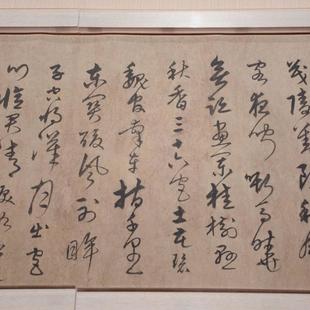 茂陵劉郎秋風
客夜聞嘶馬曉
無跡畫闌桂樹懸
秋香三十六宮土花碧
魏官牽車指千里
東關酸風射眸
子空將漢月出宮
門憶君清淚如